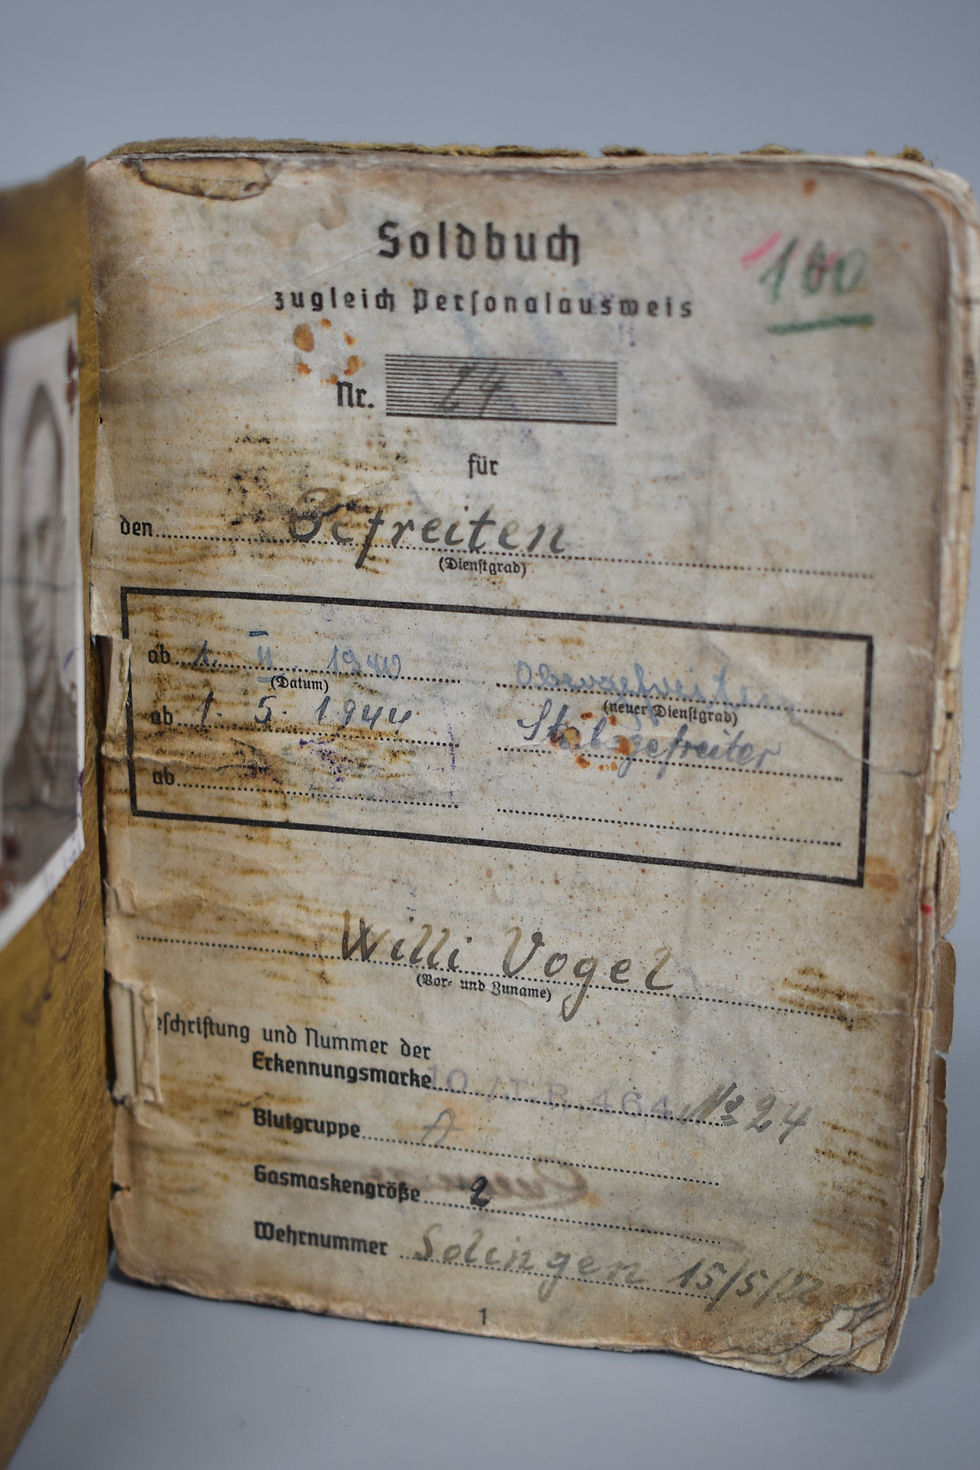 Soldbuch
100
zugleich Personalausweis
Nr. 24
für
den Gefreiten
(Dienstgrad)
ab 1. II. 1940 Obergefreiten
(Datum) (neuer Dienstgrad)
ab 1. 5. 1944 Stabsgefreiter
ab
Willi Vogel
(Vor- und Zuname)
eschriftung und Nummer der
Erkennungsmarke 10./I.R. 464 No 24
Blutgruppe A
Gasmaskengröße 2
Wehrnummer Solingen 15/5/22
1